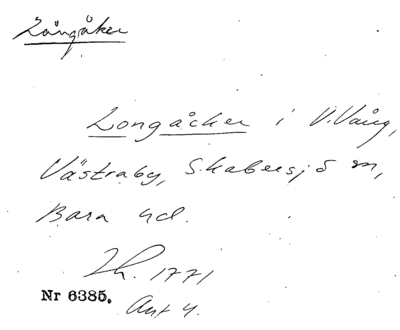 Långåker
Longåcker i V. Vång,
Västraby, Skabersjö sn,
Bara hd.
Lh. 1771
Nr 6385.
Ant 4.